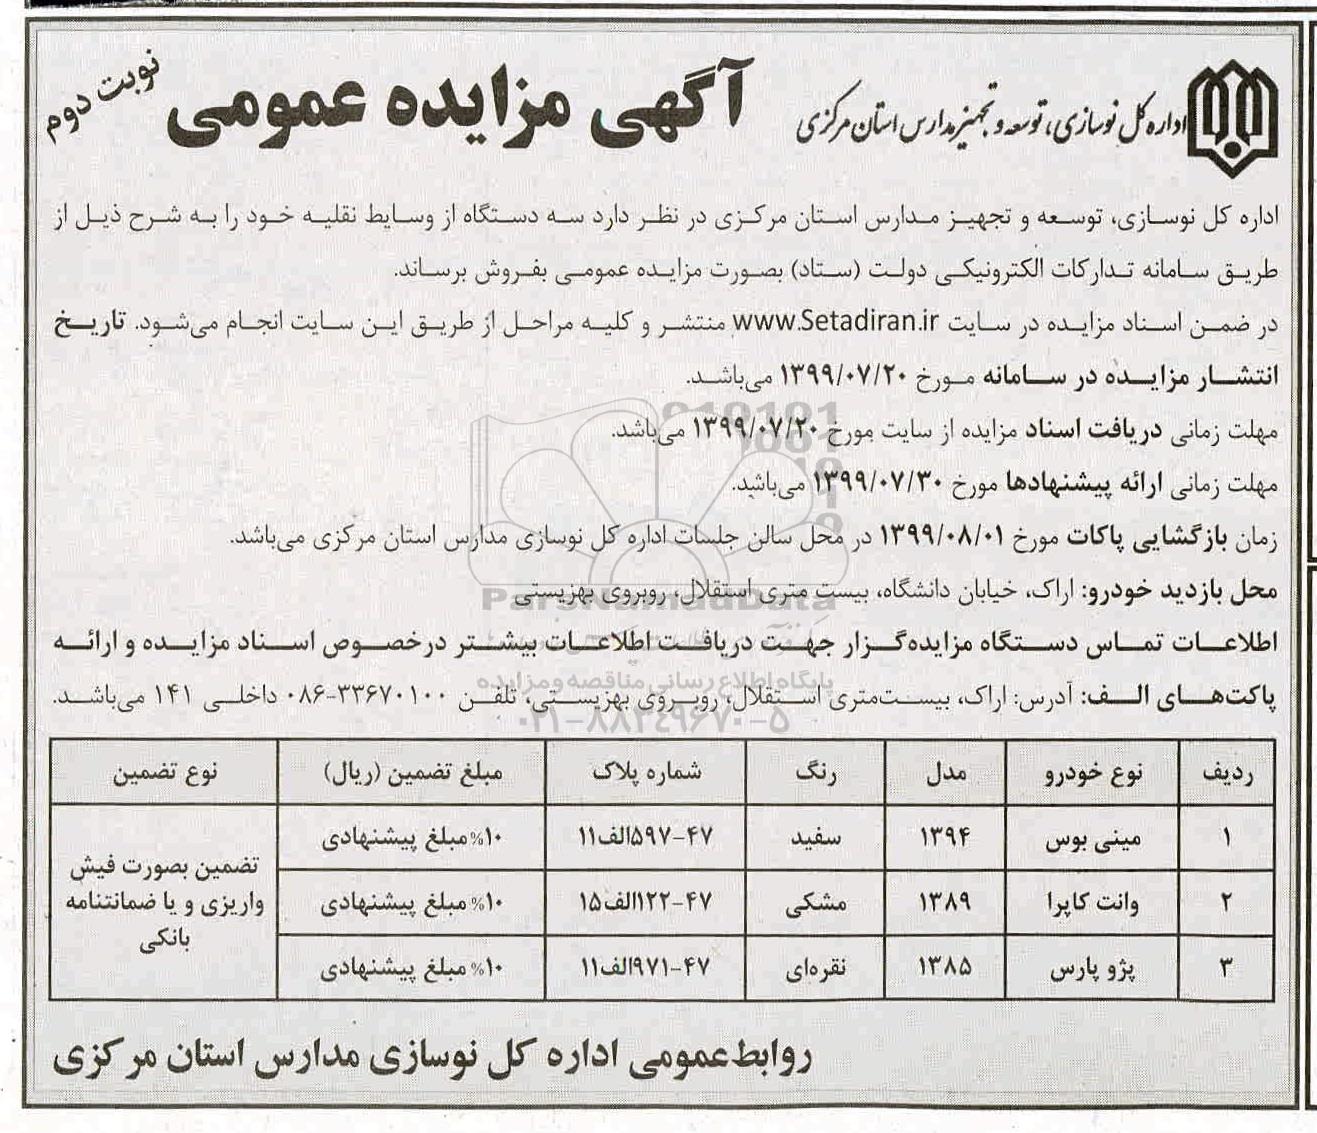 اداره کل نوسازی، توسعه و تجهیز مدارس استان مرکزی
آگهی مزایده عمومی
نوبت دوم
اداره کل نوسازی، توسعه و تجهیز مدارس استان مرکزی در نظر دارد سه دستگاه از وسایط نقلیه خود را به شرح ذیل از
طریق سامانه تدارکات الکترونیکی دولت (ستاد) بصورت مزایده عمومی بفروش برساند.
در ضمن اسناد مزایده در سایت www.Setadiran.ir منتشر و کلیه مراحل از طریق این سایت انجام می‌شود. تاریخ
انتشار مزایده در سامانه مورخ ۱۳۹۹/۰۷/۲۰ می‌باشد.
مهلت زمانی دریافت اسناد مزایده از سایت مورخ ۱۳۹۹/۰۷/۲۰ می‌باشد.
مهلت زمانی ارائه پیشنهادها مورخ ۱۳۹۹/۰۷/۳۰ می‌باشد.
زمان بازگشایی پاکات مورخ ۱۳۹۹/۰۸/۰۱ در محل سالن جلسات اداره کل نوسازی مدارس استان مرکزی می‌باشد.
محل بازدید خودرو: اراک، خیابان دانشگاه، بیست متری استقلال، روبروی بهزیستی
ParsNamadData
اطلاعات تماس دستگاه مزایده‌گزار جهت دریافت اطلاعات بیشتر درخصوص اسناد مزایده و ارائه
پایگاه اطلاع رسانی مناقصه و مزایده
پاکت‌های الف: آدرس: اراک، بیست‌متری استقلال، روبروی بهزیستی، تلفن ۳۳۶۷۰۱۰۰-۰۸۶ داخلی ۱۴۱ می‌باشد.
۰۲۱-۸۸۳۴۹۶۷۰-۵
ردیف نوع خودرو مدل رنگ شماره پلاک مبلغ تضمین (ریال) نوع تضمین
۱ مینی بوس ۱۳۹۴ سفید ۴۷-۵۹۷الف۱۱ ۱۰%مبلغ پیشنهادی
۲ وانت کاپرا ۱۳۸۹ مشکی ۴۷-۱۲۲الف۱۵ ۱۰%مبلغ پیشنهادی
۳ پژو پارس ۱۳۸۵ نقره‌ای ۴۷-۹۷۱الف۱۱ ۱۰%مبلغ پیشنهادی
تضمین بصورت فیش
واریزی و یا ضمانتنامه
بانکی
روابط‌عمومی اداره کل نوسازی مدارس استان مرکزی